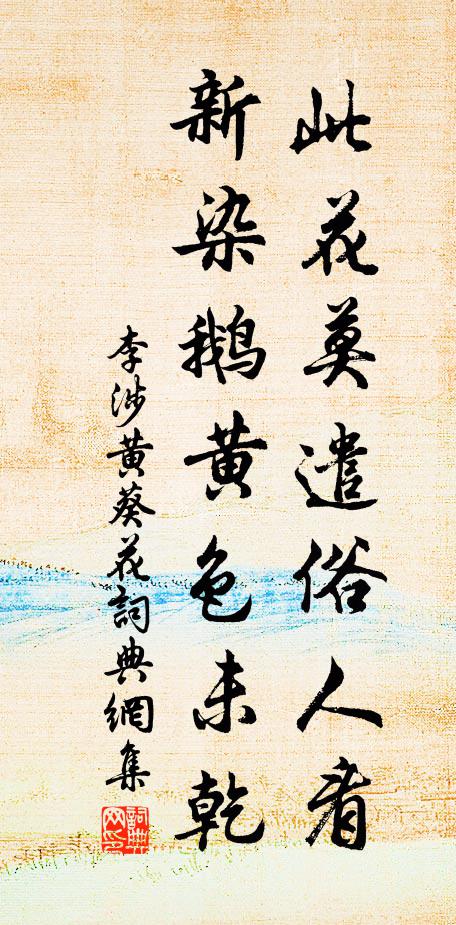 此花莫遣俗人看
新染鹅黄色未乾
李涉黄葵花詞典網集
詞典网印